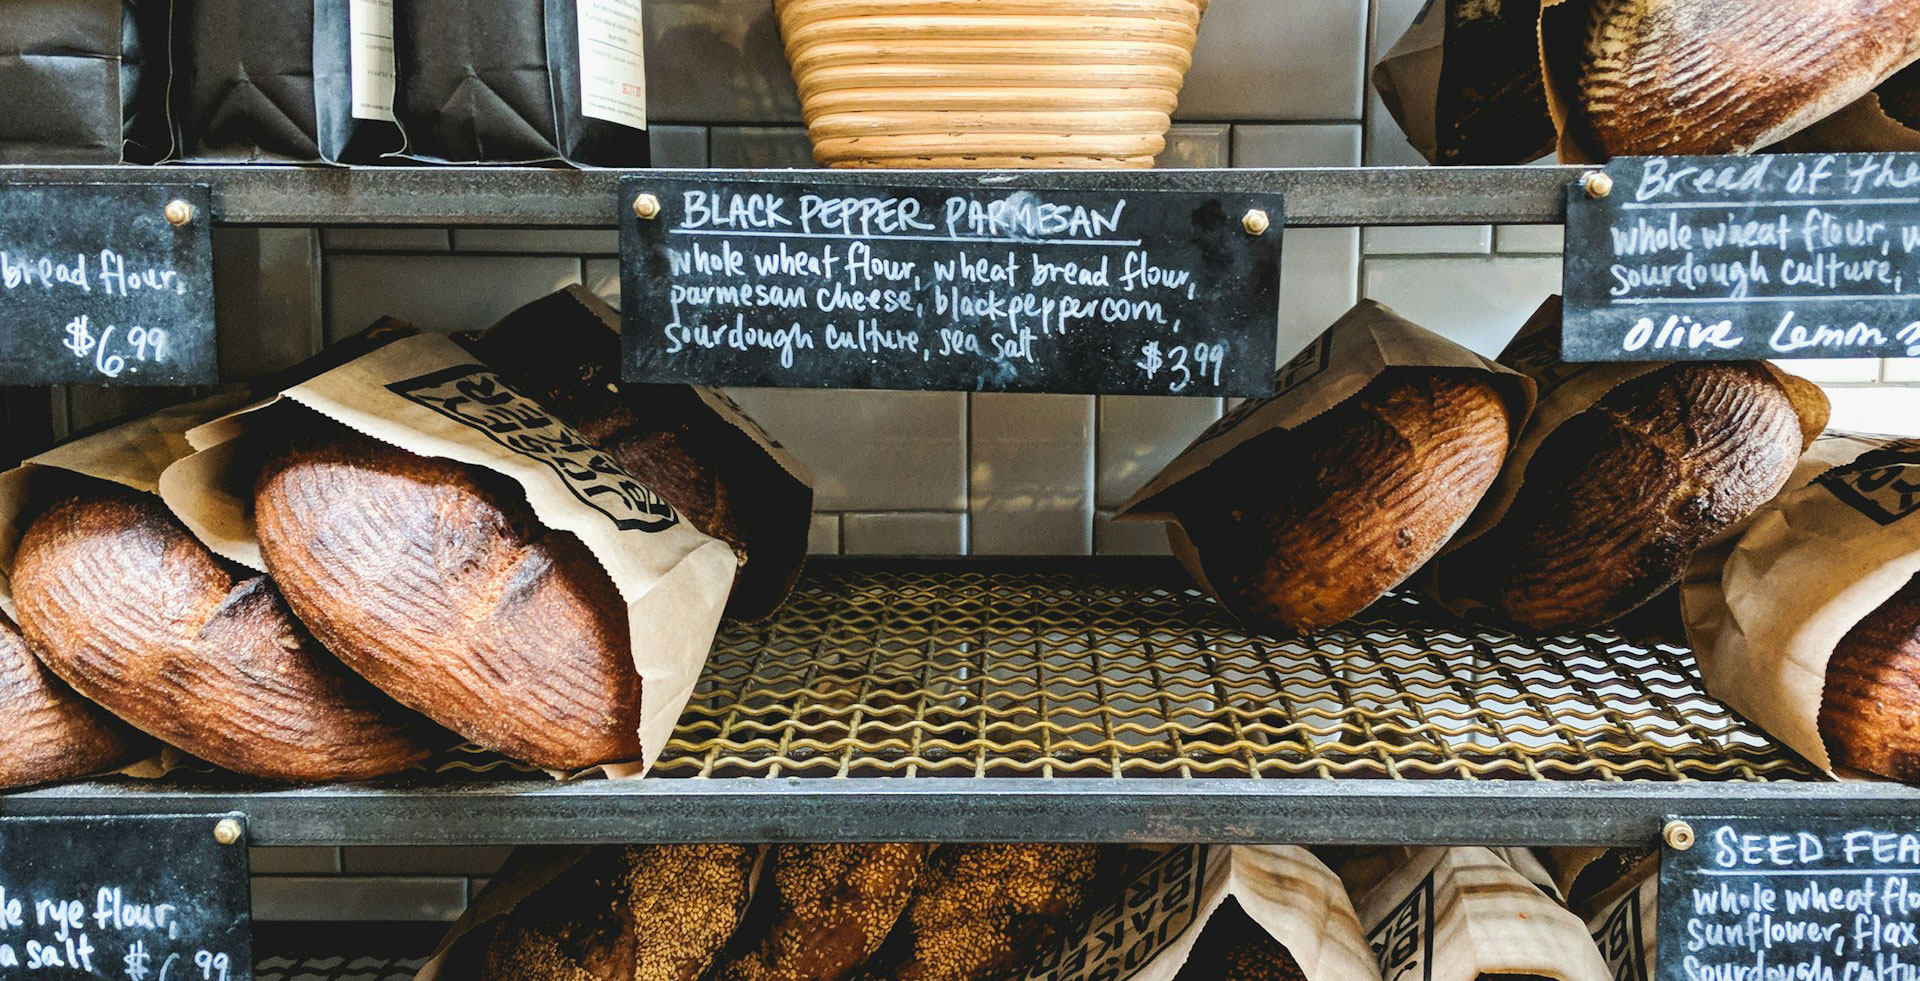 bread flour,
$6.99
BLACK PEPPER PARMESAN
whole wheat flour, wheat bread flour,
parmesan cheese, blackpeppercorn,
sourdough culture, sea salt
$3.99
Bread of the
whole wheat flour, w
sourdough culture,
Olive Lemon
JOSEY
BAKER
le rye flour,
a salt $6.99
JOSEY
BAKER
SEED FEA
whole wheat flo
sunflower, flax
sourdough cultu